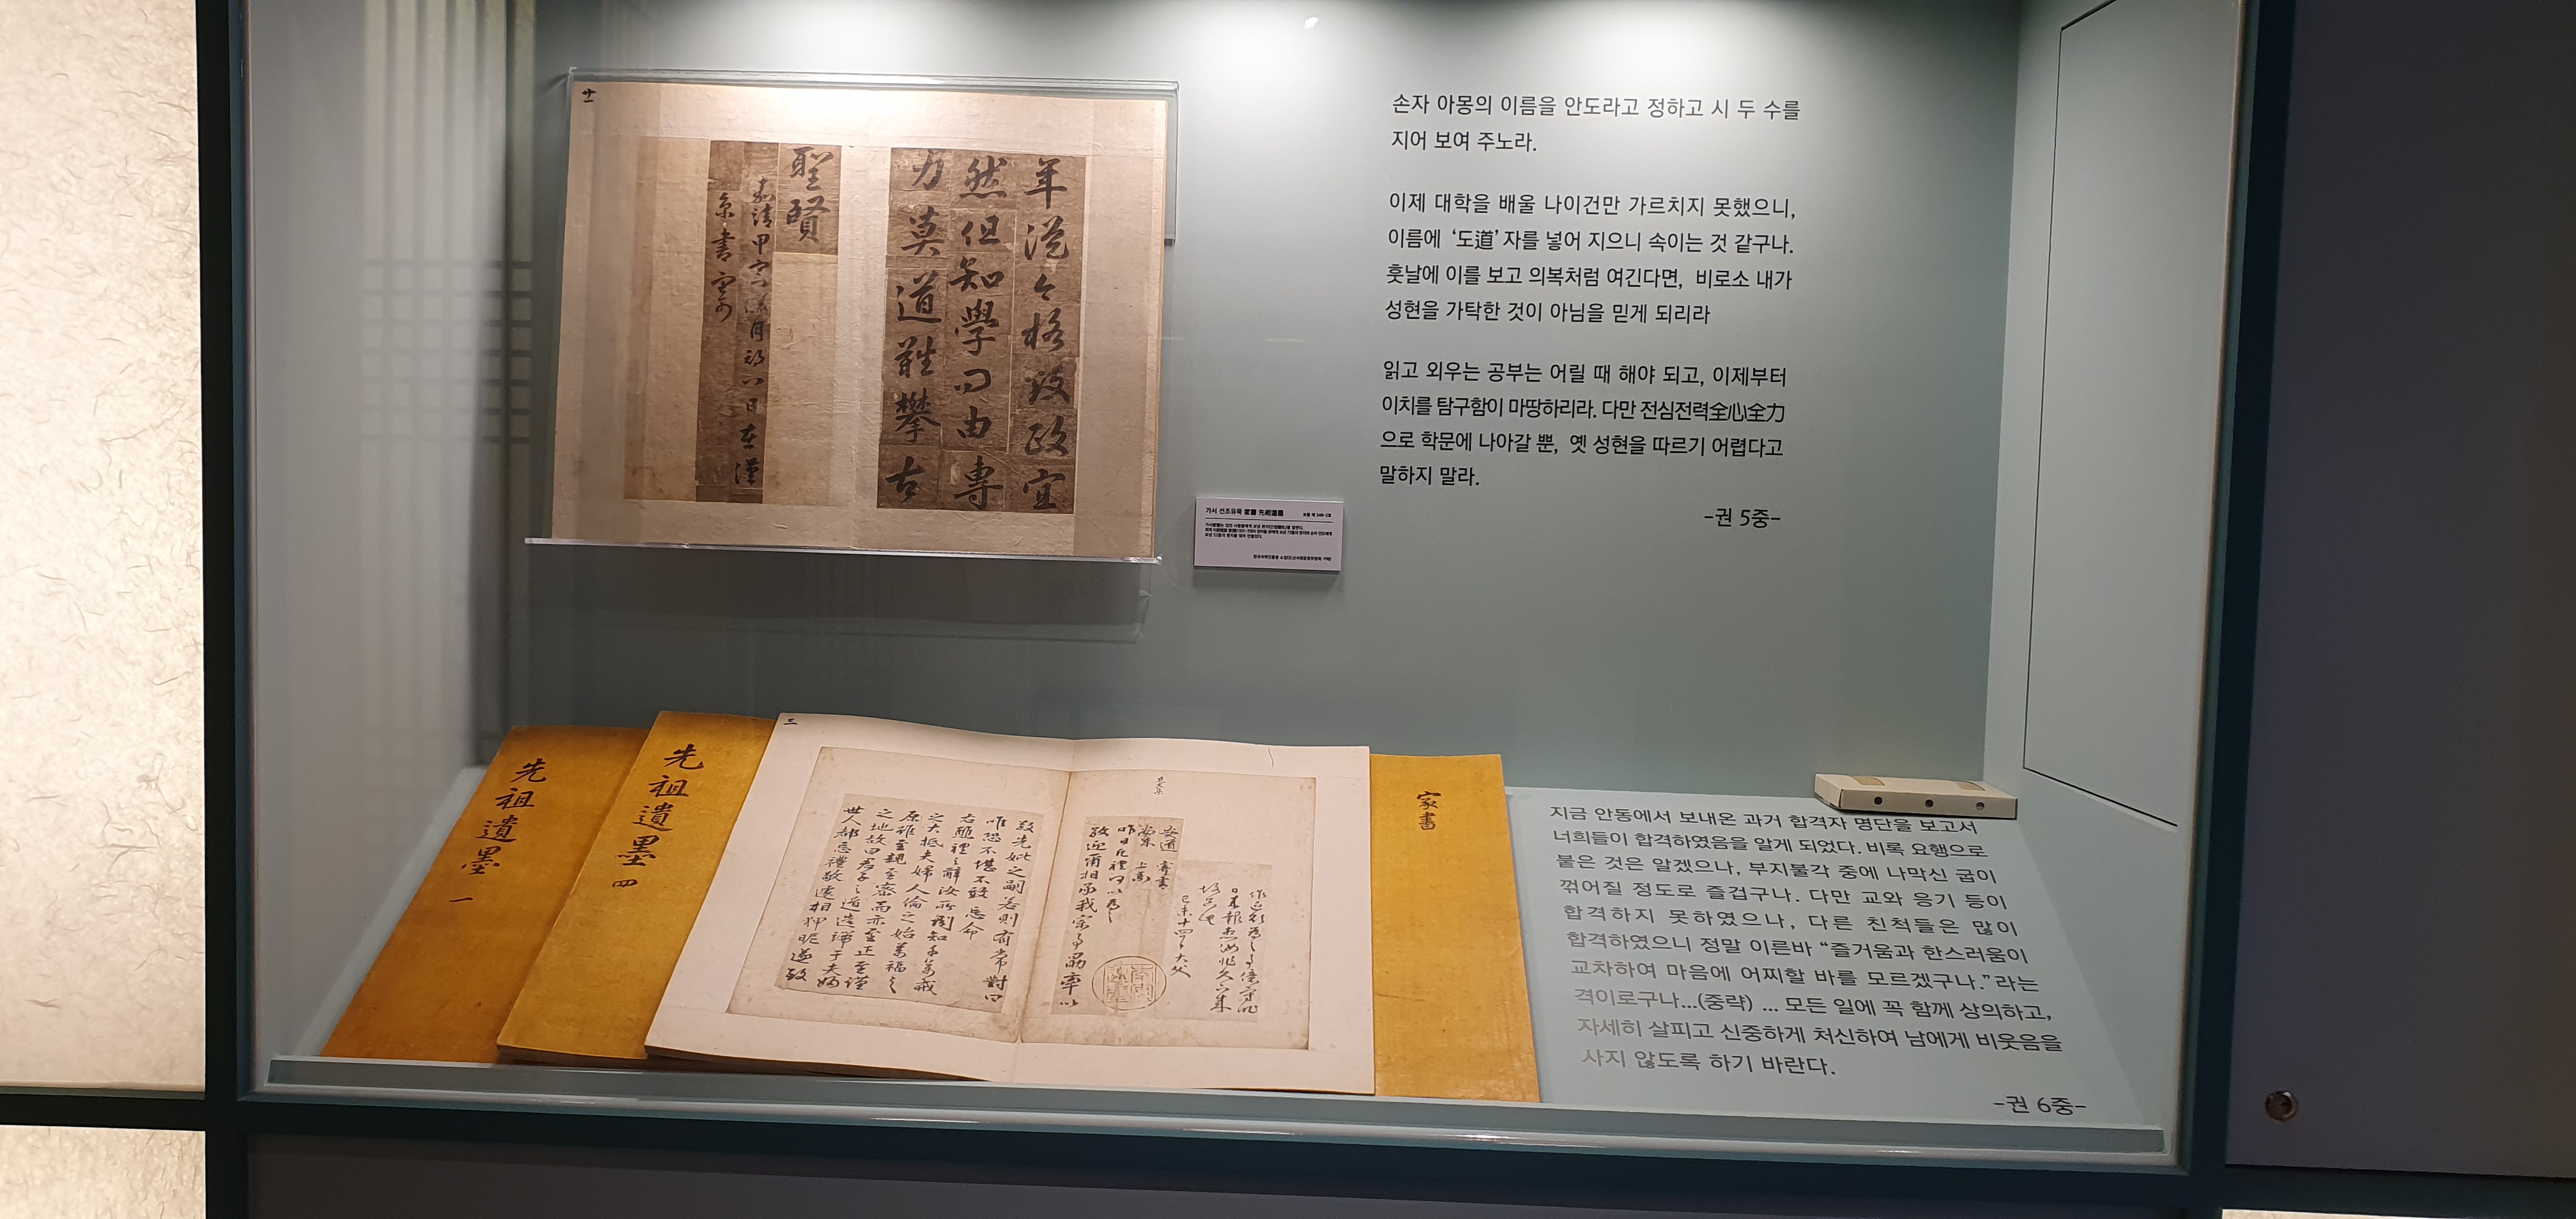 손자 아몽의 이름을 안도라고 정하고 시 두 수를
지어 보여 주노라.
이제 대학을 배울 나이건만 가르치지 못했으니,
이름에 ‘도道’ 자를 넣어 지으니 속이는 것 같구나.
훗날에 이를 보고 의복처럼 여긴다면, 비로소 내가
성현을 가탁한 것이 아님을 믿게 되리라
읽고 외우는 공부는 어릴 때 해야 되고, 이제부터
이치를 탐구함이 마땅하리라. 다만 전심전력全心全力
으로 학문에 나아갈 뿐, 옛 성현을 따르기 어렵다고
말하지 말라.
-권 5중-
卄一
年從今格致政宜
然但知學問由專
力莫道難攀古
聖賢
嘉靖甲寅
日在漢
京書寄
가서 선조유묵 家書 先祖遺墨
보물 제 548-2호
先祖遺墨 一
先祖遺墨 四
三
家書
安道 寄書
敬迎爾相承我宗事勗率以
敬先妣之嗣若則有常對曰
唯恐不堪不敢忘命
之大抵夫婦人倫之始萬福之
原雖至親至密而亦至正至謹
之地故曰君子之道造端乎夫婦
世人都忘禮敬遽相狎昵遂致
지금 안동에서 보내온 과거 합격자 명단을 보고서
너희들이 합격하였음을 알게 되었다. 비록 요행으로
붙은 것은 알겠으나, 부지불각 중에 나막신 굽이
꺾어질 정도로 즐겁구나. 다만 교와 응기 등이
합격하지 못하였으나, 다른 친척들은 많이
합격하였으니 정말 이른바 “즐거움과 한스러움이
교차하여 마음에 어찌할 바를 모르겠구나.”라는
격이로구나...(중략) ... 모든 일에 꼭 함께 상의하고,
자세히 살피고 신중하게 처신하여 남에게 비웃음을
사지 않도록 하기 바란다.
-권 6중-